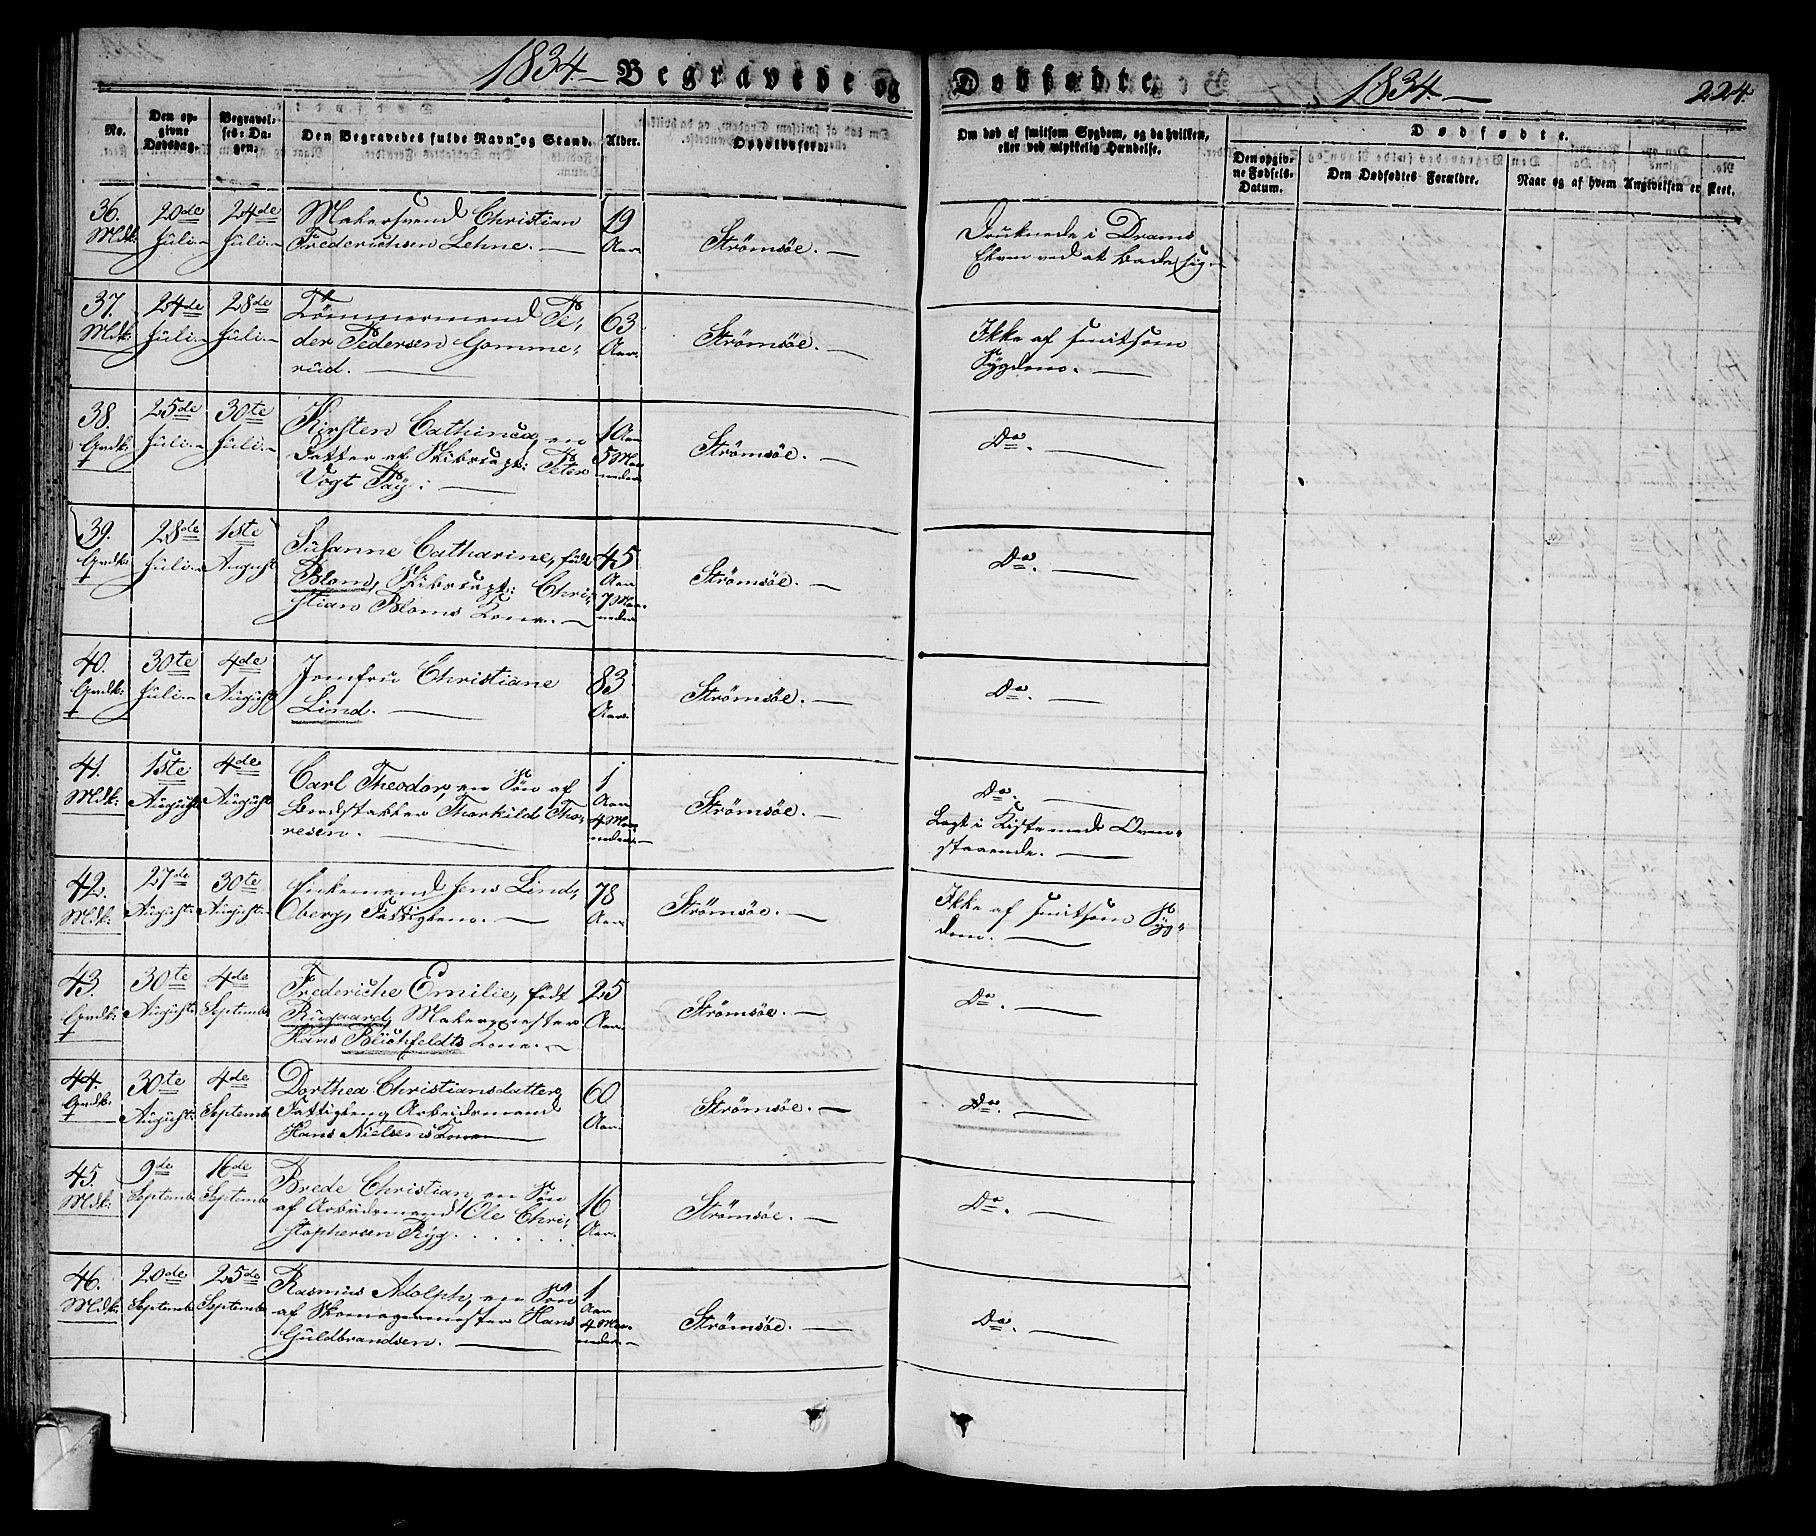 1834 — Begravede og Dödfödte. 1834. — 224.
No.
Den opgivne Dødsdag.
Begravelses-Dagen.
Den Begravedes fulde Navn og Stand.
Alder.
Opholdssted.
Om død af smitsom Sygdom, og da hvilken, eller ved ulykkelig Hændelse.
Dødfødte.
Den opgivne Fødsels-Datum.
Den Dødfødtes Forældre.
Naar og af hvem Angivelsen er skeet.
36. Mdk: 20de Juli. 24de Juli.
Malersvend Christian
Frederichsen Lehne. —
19 Aar
Strömsöe. —
Druknede i Drams
Elven ved at bade sig
37. Mdk: 24de Juli. 28de Juli.
Tömmermand Pe-
der Pedersen Gomme-
rud. —
63 Aar.
Strömsöe. —
Ikke af smitsom
Sygdom. —
38. Qvdk: 25de Juli. 30te Juli.
Kirsten Cathinca, en
Datter af Skibscapt: Peter
Vogt Paÿ: —
1 Aar 5 Maaneder
Strömsöe. —
Do —
39. Qvdk: 28de Juli. 1ste August
Susanne Catharine, föd
Blom, Skibscapt: Chri-
stian Bloms Kone. —
45 Aar 7 Maaneder
Strömsöe. —
Do. —
40. Qvdk: 30te Juli. 4de August
Jomfru Christiane
Lind. —
83 Aar.
Strömsöe. —
Do. —
41. Mdk: 1ste August 4de August
Carl Theodor, en Sön af
Bordstabler Thorkild Tho-
resen. —
1 Aar 4 Maaneder. —
Strömsöe. —
Do. —
Lagt i Kiste med Oven-
staaende. —
42. Mdk: 27de August. 30te August.
Enkemand Jens Lind-
berg, Fattiglem. —
78 Aar
Strömsöe. —
Ikke af smitsom Syg-
dom. —
43. Qvdk: 30te August. 4de Septemb
Frederiche Emilie, födt
Rugaard, Malermester
Hans Büchfeldts Kone. —
25 Aar.
Strömsöe. —
Do. —
44. Qvdk: 30te August. 4de Septemb
Dorthea Christiansdatter,
Fattiglem, Arbeidsmand
Hans Nielsens Kone
60 Aar.
Strömsöe. —
Do. —
45. Mdk: 9de Septemb 16de Septemb
Brede Christian, en Sön
af Arbeidsmand Ole Chri-
stophersen Ryg.
16 Aar.
Strömsöe. —
Do. —
46. Mdk: 20de Septemb 25de Septemb
Rasmus Adolph, en Sön
af Skomagermester Hans
Guldbrandsen. —
1 Aar 4 Maaneder. —
Strömsöe. —
Do. —